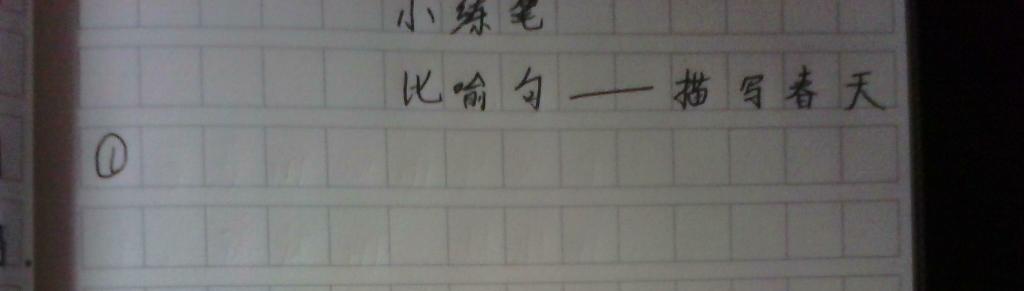 小练笔
比喻句——描写春天
①